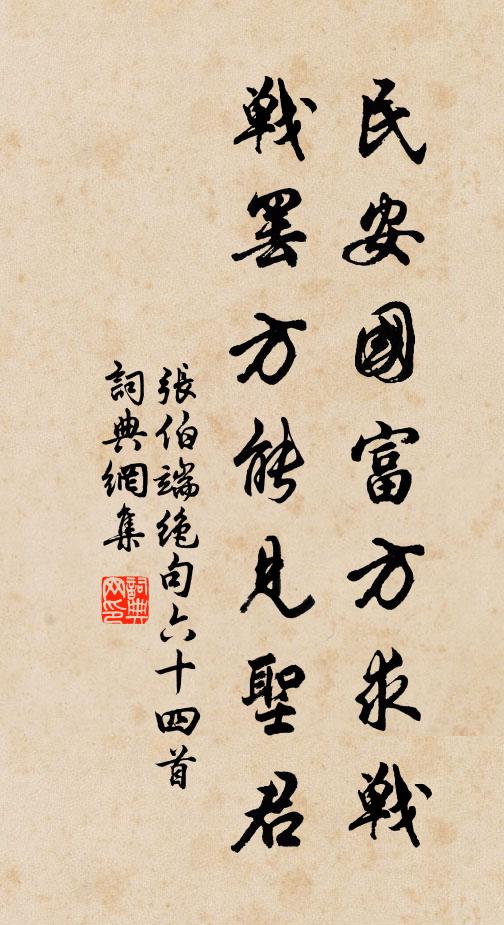 民安國富方求戰
戰罷方能見聖君
張伯端絕句六十四首
詞典網集
詞典
网印